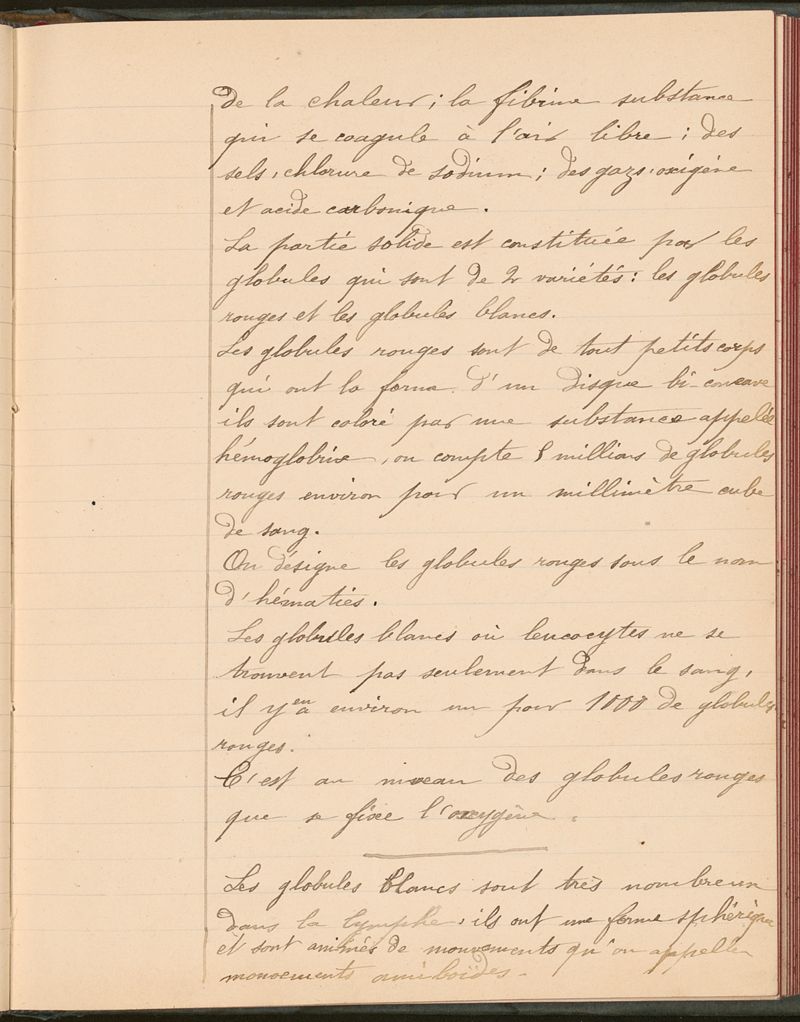 de la chaleur ; la fibrine substance
qui se coagule à l'air libre ; des
sels, chlorure de sodium ; des gazs, oxigène
et acide carbonique.
La partie solide est constituée par les
globules qui sont de 2 variétés : les globules
rouges et les globules blancs.
Les globules rouges sont de tout petits corps
qui ont la forme d'un disque bi-concave
ils sont coloré par une substance appelée
hémoglobine, on compte 5 millions de globules
rouges environ pour un millimètre cube
de sang.
On désigne les globules rouges sous le nom
d'hématies.
Les globules blancs où leucocytes ne se
trouvent pas seulement dans le sang,
il y en a environ un pour 1000 de globules
rouges.
C'est au niveau des globules rouges
que se fixe l'oxygène.
Les globules blancs sont très nombreux
dans la lymphe, ils ont une forme sphérique
et sont animés de mouvements qu'on appelle
mouvements amiboïdes.